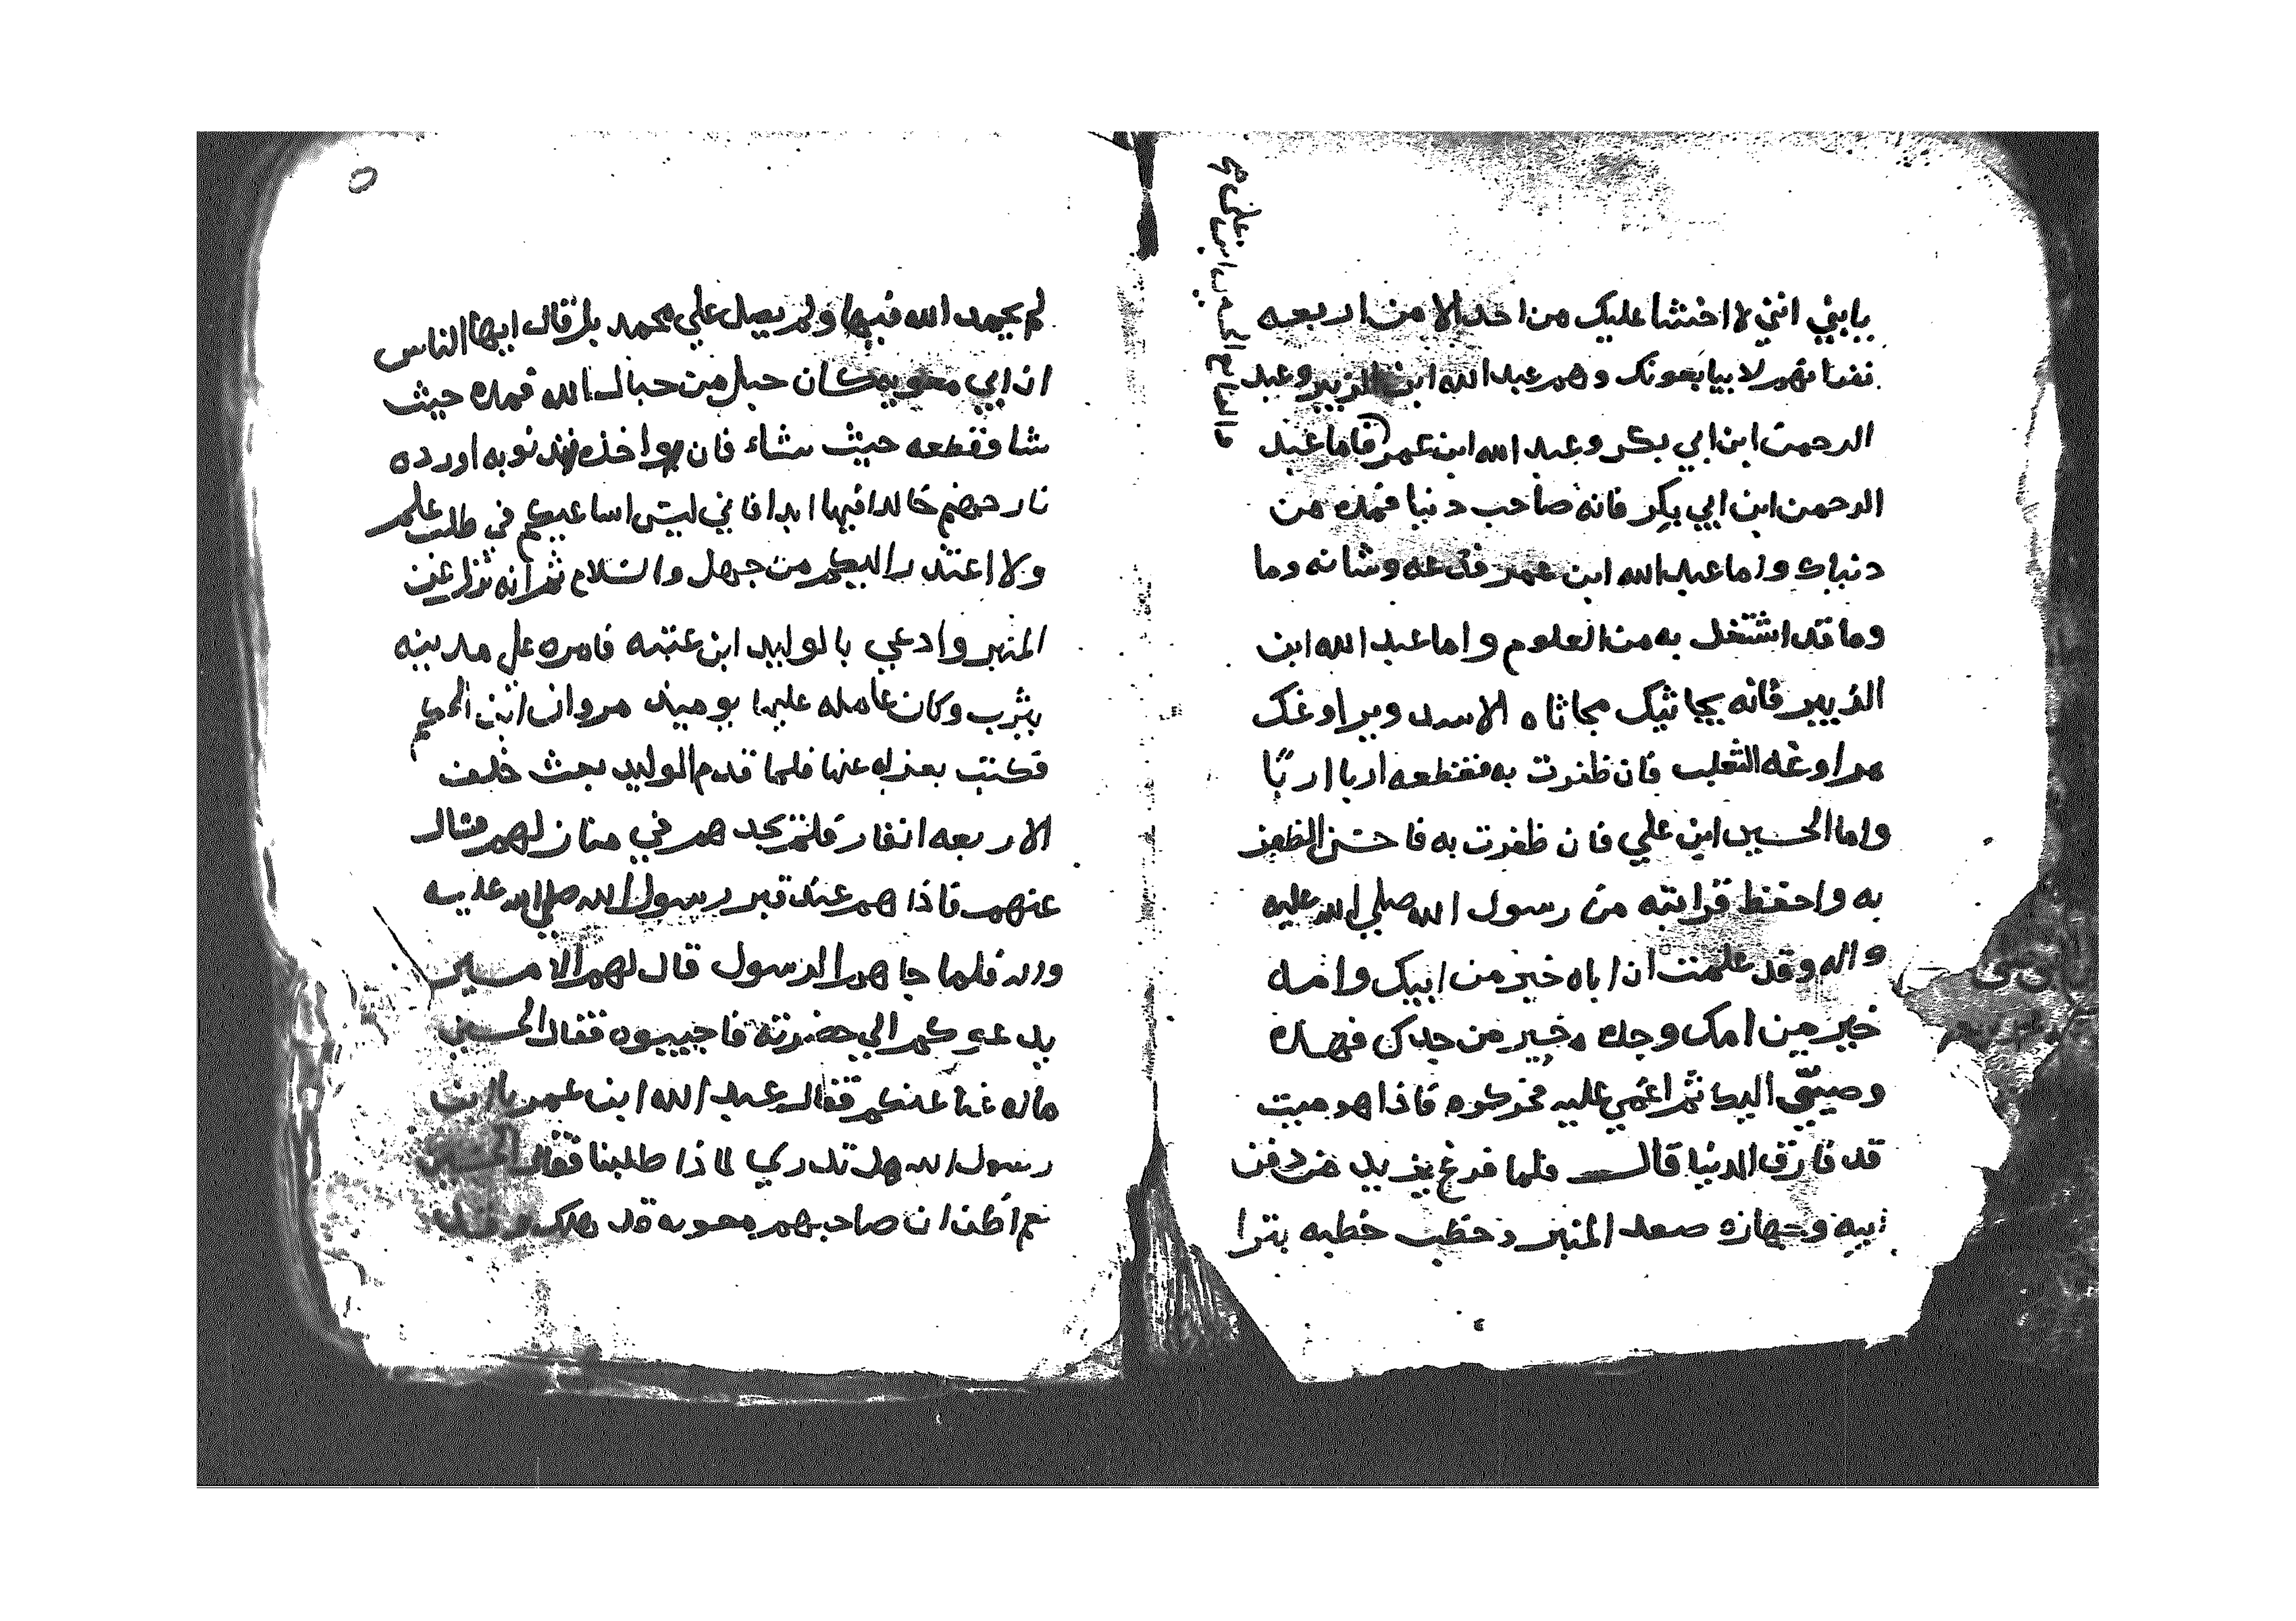 يابني انني لا اخشا عليك من احد الا من اربعه
نفر فانهم لا يبايعونك وهم عبد الله ابن الزبير وعبد
الرحمن ابن ابي بكر وعبد الله ابن عمر فاما عبد
الرحمن ابن ابي بكر فانه صاحب دنيا فمده من
دنياك واما عبد الله ابن عمر فدعه وشانه وما
وما قد اشتغل به من العلوم واما عبد الله ابن
الزبير فانه يجاثيك مجاثاه الاسد ويراوغك
مراوغه الثعلب فان ظفرت به فقطعه اربا اربًا
واما الحسين ابن علي فان ظفرت به فاحسن الظفر
به واحفظ قرابته من رسول الله صلي الله عليه
واله وقد علمت ان اباه خير من ابيك وامه
خير من امك وجده خير من جدك فهذه
وصيتي اليك ثم اغمي عليه فحركوه فاذا هو ميت
قد فارق الدنيا قال فلما فرغ يزيد من دفن
ابيه وجهازه صعد المنبر وخطب خطبه بترا
لم يحمد الله فيها ولم يصل علي محمد بل قال ايها الناس
ان ابي معويه كان حبل من حبال الله فمده حيث
شا وقطعه حيث شاء فان اخذه نوبه اورده
نار جهنم خالدا فيها ابدا فاني ليس اساعيكم في طلب علم
ولا اعتذر اليكم من جهل والسلام ثم انه نزل عن
المنبر وادعي بالوليد ابن عتبه فامره علي مدينه
يثرب وكان عامله عليها يوميذ مروان ابن الحكم
فكتب بعزله عنها فلما قدم الوليد بعث خلف
الاربعه انفار فلم يجدهم في منازلهم فسال
عنهم فاذا هم عند قبر رسول الله صلي الله عليه
واله فلما جاهم الرسول قال لهم الامير
يدعوكم الي حضرته فاجيبوه فقال الحسين
ماله غنا عنكم فقال عبد الله ابن عمر يا ابن
رسول الله هل تدري لماذا طلبنا فقال الحسين
نعم اظن ان صاحبهم معويه قد هلك